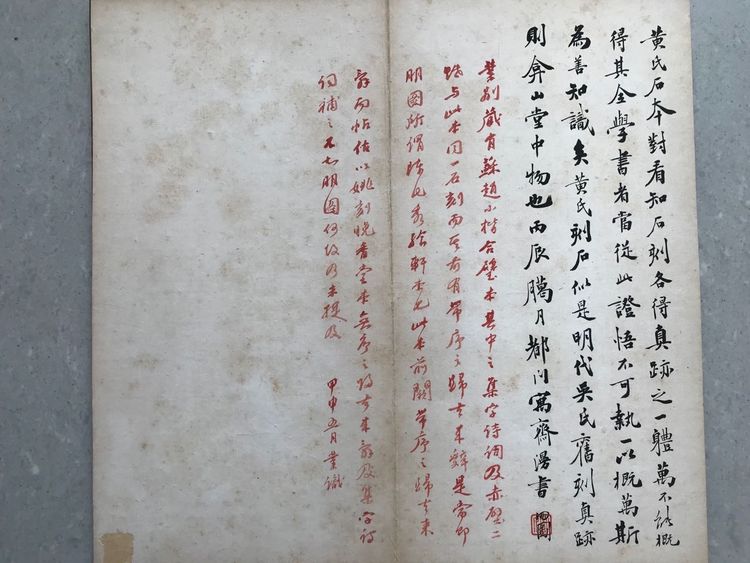 黃氏石本對看知石刻各得真跡之一體萬不能概
得其全學書者當從此證悟不可執一以概萬斯
為善知識矣黃氏刻石似是明代吳氏舊刻真跡
則弇山堂中物也丙辰臈月都門寓齋漫書
業別藏有蘇趙小楷合璧本其中之集字詩詞及赤壁二
賦與此本同一石刻而其前有帶序之歸去來辭是當即
朋圖所謂陳氏秀餐軒本也此本前闕帶序之歸去來
辭而帖估以姚刻晚香堂本無序之歸去來辭及集字詩
詞補之不知朋圖何故乃未提及
甲申五月業識